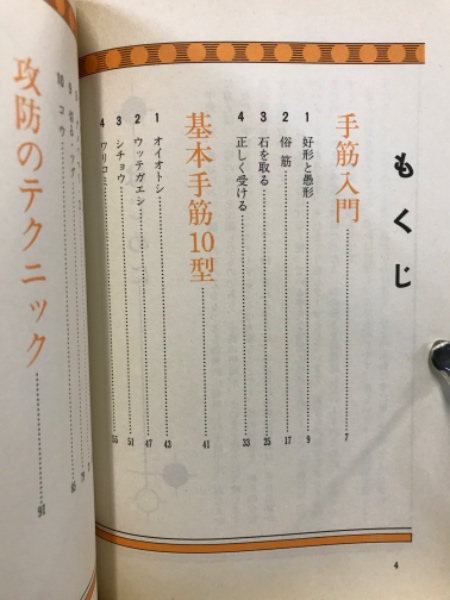 もくじ
手筋入門 7
1 好形と愚形 9
2 俗筋 17
3 石を取る 25
4 正しく受ける 33
基本手筋10型 41
1 オイオトシ 43
2 ウッテガエシ 47
3 シチョウ 51
4 ワリコミ 55
4
9 切る・ツグ
10 コウ 85
攻防のテクニック 91